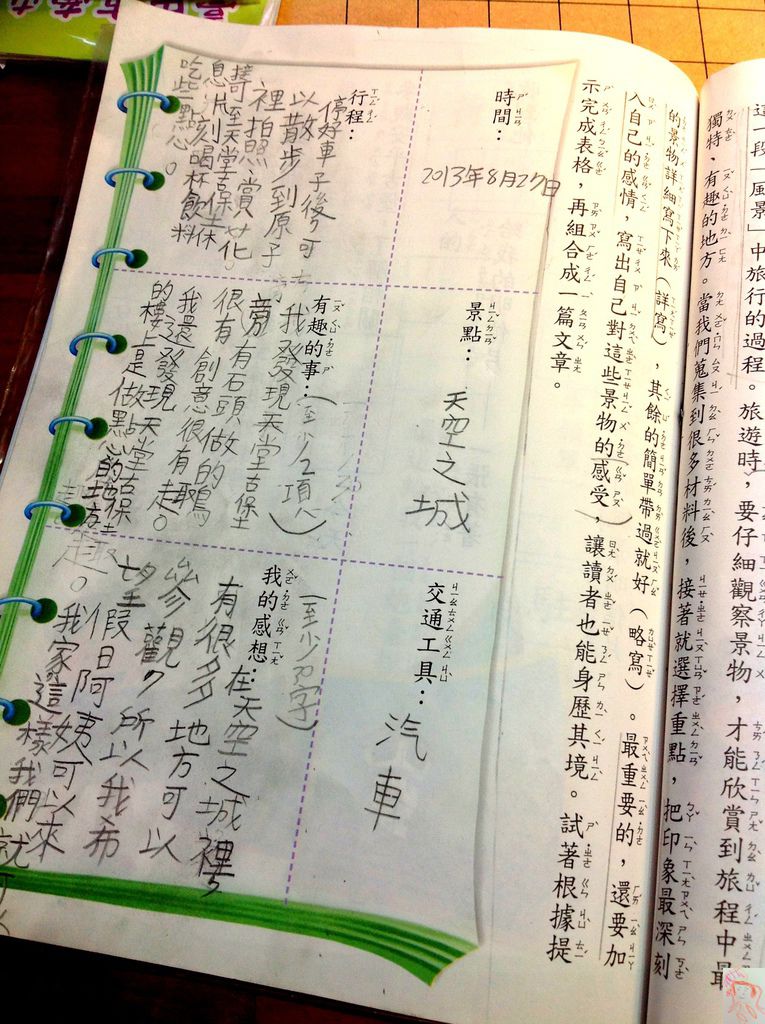 這一段「風景」中旅行的過程。旅遊時，要仔細觀察景物，才能欣賞到旅程中最
獨特、有趣的地方。當我們蒐集到很多材料後，接著就選擇重點，把印象最深刻
的景物詳細寫下來（詳寫），其餘的簡單帶過就好（略寫）。最重要的，還要加
入自己的感情，寫出自己對這些景物的感受，讓讀者也能身歷其境。試著根據提
示完成表格，再組合成一篇文章。
時間：
2013年8月27日
景點：
天空之城
交通工具：
汽車
行程：
停好車子後可
以散步到原子
裡拍照賞花
休
息片刻喝杯飲料
吃些點心。
有趣的事：（至少2項）
我發現天堂古堡
旁有石頭做的鴨
很有創意很有趣。
我還發現天堂古堡
的樓上是做點心的地方
我的感想：
（至少
字）
有很多在天空之城裡
參觀
地方可以
望
所以我希
假日阿姨可以來
我家這樣我們就